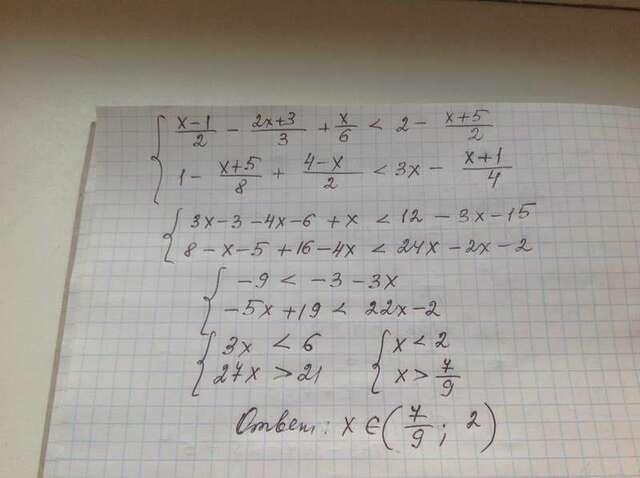 { (x-1)/2 - (2x+3)/3 + x/6 < 2 - (x+5)/2
1 - (x+5)/8 + (4-x)/2 < 3x - (x+1)/4
{ 3x-3-4x-6+x < 12-3x-15
8-x-5+16-4x < 24x-2x-2
{ -9 < -3-3x
-5x+19 < 22x-2
{ 3x < 6 { x < 2
27x > 21 x > 7/9
Ответ: x ∈ (7/9; 2)